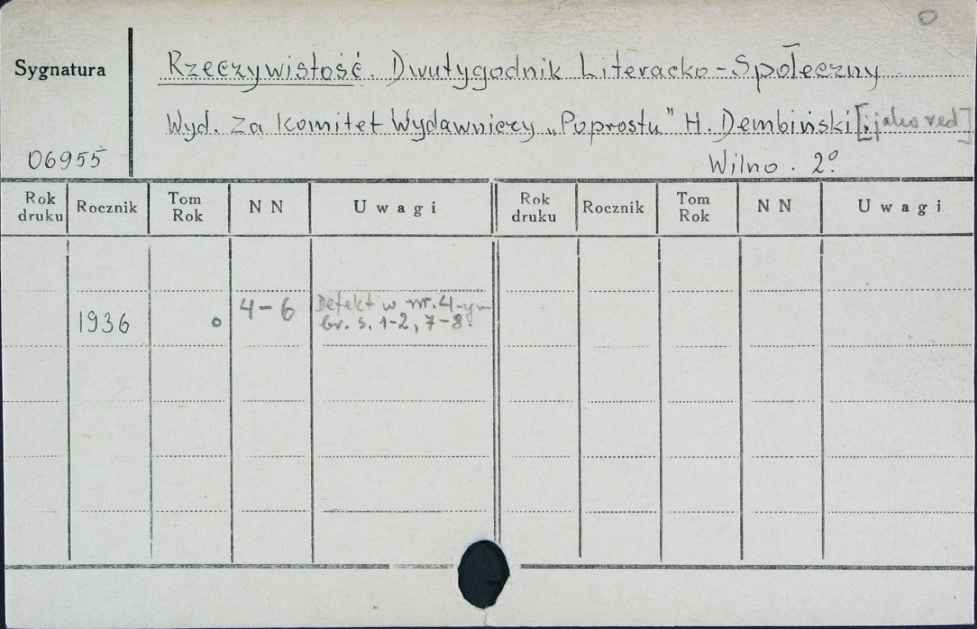 0
Sygnatura
Rzeczywistość. Dwutygodnik Literacko-Społeczny
Wyd. za Komitet Wydawniczy „Poprostu" H. Dembiński [i jako red]
06955
Wilno. 2°
Rok druku Rocznik Tom Rok NN Uwagi Rok druku Rocznik Tom Rok NN Uwagi
1936 o 4-6 Defekt w nr. 4-ym
br. s. 1-2, 7-8.